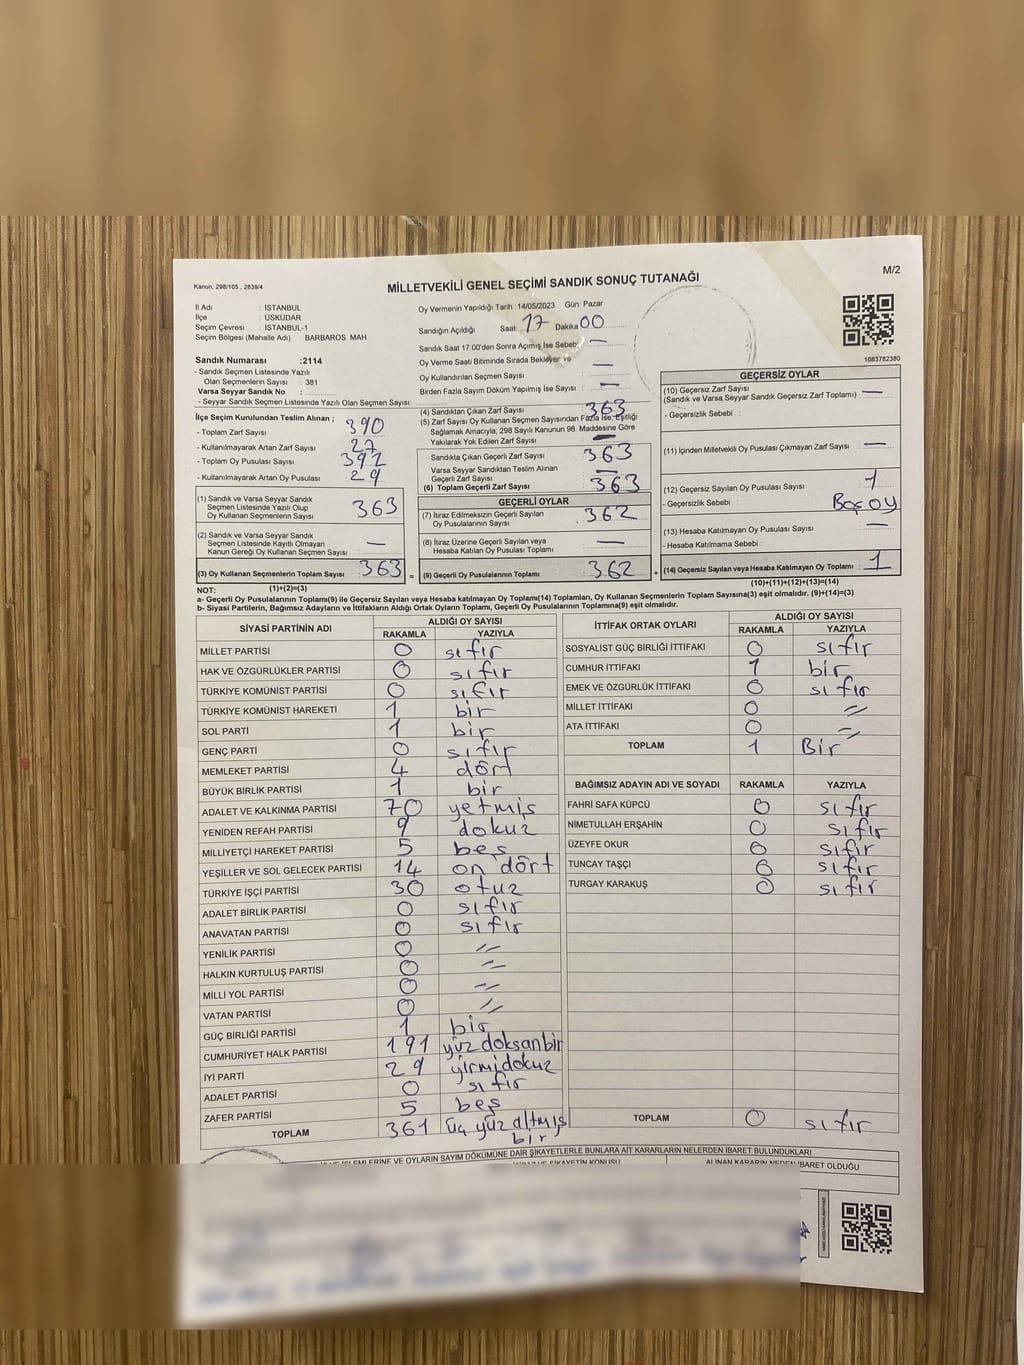 Kanun; 298/105 , 2839/4
MİLLETVEKİLİ GENEL SEÇİMİ SANDIK SONUÇ TUTANAĞI
M/2
İl Adı : İSTANBUL
İlçe : ÜSKÜDAR
Seçim Çevresi : İSTANBUL-1
Seçim Bölgesi (Mahalle Adı) : BARBAROS MAH
Sandık Numarası : 2114
- Sandık Seçmen Listesinde Yazılı
Olan Seçmenlerin Sayısı : 381
Varsa Seyyar Sandık No :
- Seyyar Sandık Seçmen Listesinde Yazılı Olan Seçmen Sayısı:
İlçe Seçim Kurulundan Teslim Alınan ;
- Toplam Zarf Sayısı 390
- Kullanılmayarak Artan Zarf Sayısı 27
- Toplam Oy Pusulası Sayısı 392
- Kullanılmayarak Artan Oy Pusulası 29
(1) Sandık ve Varsa Seyyar Sandık
Seçmen Listesinde Yazılı Olup
Oy Kullanan Seçmenlerin Sayısı 363
(2) Sandık ve Varsa Seyyar Sandık
Seçmen Listesinde Kayıtlı Olmayan
Kanun Gereği Oy Kullanan Seçmen Sayısı —
(3) Oy Kullanan Seçmenlerin Toplam Sayısı 363 =
Oy Vermenin Yapıldığı Tarih 14/05/2023 Gün: Pazar
Sandığın Açıldığı Saat: 17 Dakika 00
Sandık Saat 17:00'den Sonra Açılmış İse Sebebi —
Oy Verme Saati Bitiminde Sırada Bekleyen ve
Oy Kullandırılan Seçmen Sayısı —
Birden Fazla Sayım Döküm Yapılmış İse Sayısı : —
(4) Sandıktan Çıkan Zarf Sayısı 363
(5) Zarf Sayısı Oy Kullanan Seçmen Sayısından Fazla İse, Eşitliği
Sağlamak Amacıyla; 298 Sayılı Kanunun 98. Maddesine Göre
Yakılarak Yok Edilen Zarf Sayısı —
Sandıkta Çıkan Geçerli Zarf Sayısı 363
Varsa Seyyar Sandıktan Teslim Alınan
Geçerli Zarf Sayısı —
(6) Toplam Geçerli Zarf Sayısı 363
GEÇERLİ OYLAR
(7) İtiraz Edilmeksizin Geçerli Sayılan
Oy Pusulalarının Sayısı 362
(8) İtiraz Üzerine Geçerli Sayılan veya
Hesaba Katılan Oy Pusulası Toplamı —
(9) Geçerli Oy Pusulalarının Toplamı 362 +
1083782380
GEÇERSİZ OYLAR
(10) Geçersiz Zarf Sayısı
(Sandık ve Varsa Seyyar Sandık Geçersiz Zarf Toplamı) —
- Geçersizlik Sebebi :
(11) İçinden Milletvekili Oy Pusulası Çıkmayan Zarf Sayısı —
(12) Geçersiz Sayılan Oy Pusulası Sayısı 1
- Geçersizlik Sebebi : Boş oy
(13) Hesaba Katılmayan Oy Pusulası Sayısı —
- Hesaba Katılmama Sebebi :
(14) Geçersiz Sayılan veya Hesaba Katılmayan Oy Toplamı 1
NOT: (1)+(2)=(3) (10)+(11)+(12)+(13)=(14)
a- Geçerli Oy Pusulalarının Toplamı(9) ile Geçersiz Sayılan veya Hesaba katılmayan Oy Toplamı(14) Toplamları, Oy Kullanan Seçmenlerin Toplam Sayısına(3) eşit olmalıdır. (9)+(14)=(3)
b- Siyasi Partilerin, Bağımsız Adayların ve İttifakların Aldığı Ortak Oyların Toplamı, Geçerli Oy Pusulalarının Toplamına(9) eşit olmalıdır.
SİYASİ PARTİNİN ADI ALDIĞI OY SAYISI
RAKAMLA YAZIYLA
MİLLET PARTİSİ 0 sıfır
HAK VE ÖZGÜRLÜKLER PARTİSİ 0 sıfır
TÜRKİYE KOMÜNİST PARTİSİ 0 sıfır
TÜRKİYE KOMÜNİST HAREKETİ 1 bir
SOL PARTİ 1 bir
GENÇ PARTİ 0 sıfır
MEMLEKET PARTİSİ 4 dört
BÜYÜK BİRLİK PARTİSİ 1 bir
ADALET VE KALKINMA PARTİSİ 70 yetmiş
YENİDEN REFAH PARTİSİ 9 dokuz
MİLLİYETÇİ HAREKET PARTİSİ 5 beş
YEŞİLLER VE SOL GELECEK PARTİSİ 14 on dört
TÜRKİYE İŞÇİ PARTİSİ 30 otuz
ADALET BİRLİK PARTİSİ 0 sıfır
ANAVATAN PARTİSİ 0 sıfır
YENİLİK PARTİSİ 0 〃
HALKIN KURTULUŞ PARTİSİ 0 〃
MİLLİ YOL PARTİSİ 0 〃
VATAN PARTİSİ 0 〃
GÜÇ BİRLİĞİ PARTİSİ 1 bir
CUMHURİYET HALK PARTİSİ 191 yüz doksan bir
İYİ PARTİ 29 yirmidokuz
ADALET PARTİSİ 0 sıfır
ZAFER PARTİSİ 5 beş
TOPLAM 361 üç yüz altmış
bir
İTTİFAK ORTAK OYLARI ALDIĞI OY SAYISI
RAKAMLA YAZIYLA
SOSYALİST GÜÇ BİRLİĞİ İTTİFAKI 0 sıfır
CUMHUR İTTİFAKI 1 bir
EMEK VE ÖZGÜRLÜK İTTİFAKI 0 sıfır
MİLLET İTTİFAKI 0 〃
ATA İTTİFAKI 0 〃
TOPLAM 1 Bir
BAĞIMSIZ ADAYIN ADI VE SOYADI RAKAMLA YAZIYLA
FAHRİ SAFA KÜPCÜ 0 sıfır
NİMETULLAH ERŞAHİN 0 sıfır
ÜZEYFE OKUR 0 sıfır
TUNCAY TAŞÇI 0 sıfır
TURGAY KARAKUŞ 0 sıfır
TOPLAM 0 sıfır
İŞLEMLERİNE VE OYLARIN SAYIM DÖKÜMÜNE DAİR ŞİKAYETLERLE BUNLARA AİT KARARLARIN NELERDEN İBARET BULUNDUKLARI
ALINAN KARARIN NEDEN İBARET OLDUĞU